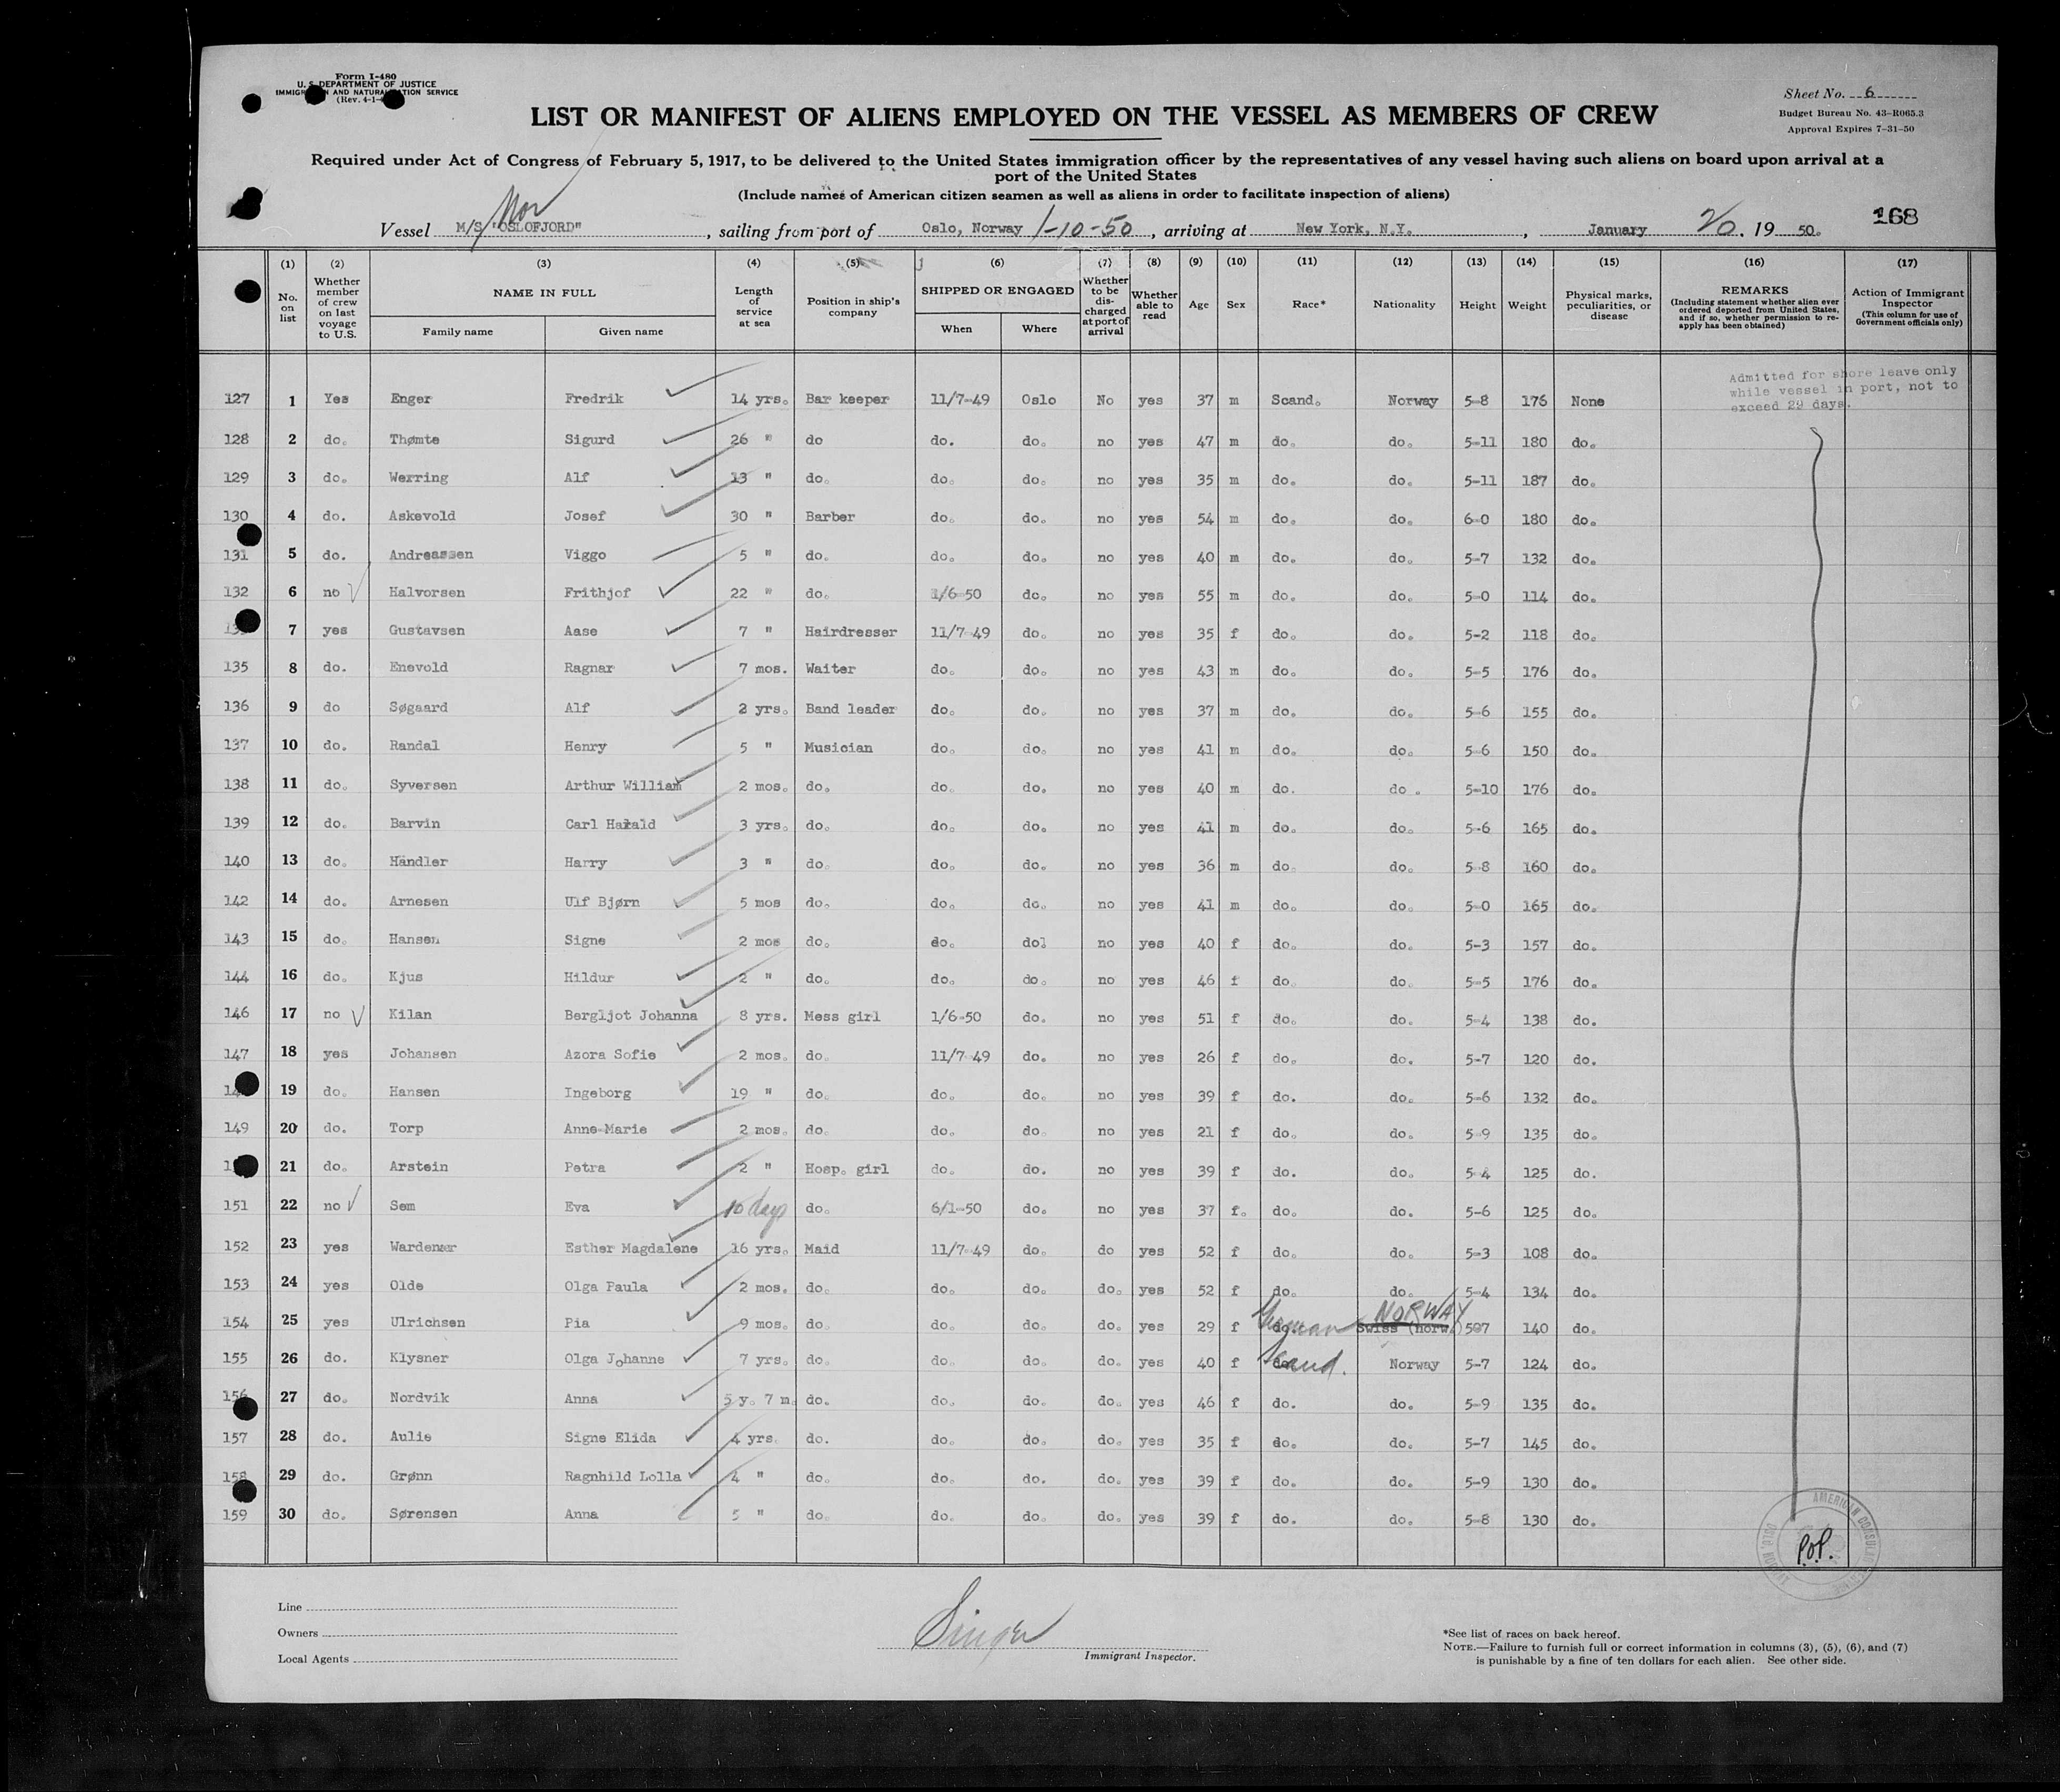 Form I-480
U. S. DEPARTMENT OF JUSTICE
IMMIGRATION AND NATURALIZATION SERVICE
(Rev. 4-1-
Sheet No. 6
Budget Bureau No. 43-R065.3
Approval Expires 7-31-50
LIST OR MANIFEST OF ALIENS EMPLOYED ON THE VESSEL AS MEMBERS OF CREW
Required under Act of Congress of February 5, 1917, to be delivered to the United States immigration officer by the representatives of any vessel having such aliens on board upon arrival at a
port of the United States
(Include names of American citizen seamen as well as aliens in order to facilitate inspection of aliens)
Nor
Vessel M/S "OSLOFJORD", sailing from port of Oslo, Norway 1-10-50, arriving at New York, N.Y., January 20, 19 50. 168
(1) (2) (3) (4) (5) (6) (7) (8) (9) (10) (11) (12) (13) (14) (15) (16) (17)
No. on list
Whether member of crew on last voyage to U.S.
NAME IN FULL
Family name Given name
Length of service at sea
Position in ship's company
SHIPPED OR ENGAGED
When Where
Whether to be discharged at port of arrival
Whether able to read
Age
Sex
Race*
Nationality
Height
Weight
Physical marks, peculiarities, or disease
REMARKS
(Including statement whether alien ever ordered deported from United States, and if so, whether permission to reapply has been obtained)
Action of Immigrant Inspector
(This column for use of Government officials only)
Admitted for shore leave only
while vessel in port, not to
exceed 29 days.
127 1 Yes Enger Fredrik 14 yrs. Bar keeper 11/7-49 Oslo No yes 37 m Scand. Norway 5-8 176 None
128 2 do. Thømte Sigurd 26 " do do. do. no yes 47 m do. do. 5-11 180 do.
129 3 do. Werring Alf 13 " do. do. do. no yes 35 m do. do. 5-11 187 do.
130 4 do. Askevold Josef 30 " Barber do. do. no yes 54 m do. do. 6-0 180 do.
131 5 do. Andreassen Viggo 5 " do. do. do. no yes 40 m do. do. 5-7 132 do.
132 6 no Halvorsen Frithjof 22 " do. 1/6-50 do. no yes 55 m do. do. 5-0 114 do.
7 yes Gustavsen Aase 7 " Hairdresser 11/7-49 do. no yes 35 f do. do. 5-2 118 do.
135 8 do. Enevold Ragnar 7 mos. Waiter do. do. no yes 43 m do. do. 5-5 176 do.
136 9 do Søgaard Alf 2 yrs. Band leader do. do. no yes 37 m do. do. 5-6 155 do.
137 10 do. Randal Henry 5 " Musician do. do. no yes 41 m do. do. 5-6 150 do.
138 11 do. Syversen Arthur William 2 mos. do. do. do. no yes 40 m do. do. 5-10 176 do.
139 12 do. Barvin Carl Harald 3 yrs. do. do. do. no yes 41 m do. do. 5-6 165 do.
140 13 do. Händler Harry 3 " do. do. do. no yes 36 m do. do. 5-8 160 do.
142 14 do. Arnesen Ulf Bjørn 5 mos do. do. do. no yes 41 m do. do. 5-0 165 do.
143 15 do. Hansen Signe 2 mos do. do. do. no yes 40 f do. do. 5-3 157 do.
144 16 do. Kjus Hildur 2 " do. do. do. no yes 46 f do. do. 5-5 176 do.
146 17 no Kilan Bergljot Johanna 8 yrs. Mess girl 1/6-50 do. no yes 51 f do. do. 5-4 138 do.
147 18 yes Johansen Azora Sofie 2 mos. do. 11/7-49 do. no yes 26 f do. do. 5-7 120 do.
19 do. Hansen Ingeborg 19 " do. do. do. no yes 39 f do. do. 5-6 132 do.
149 20 do. Torp Anne-Marie 2 mos. do. do. do. no yes 21 f do. do. 5-9 135 do.
21 do. Arstein Petra 2 " Hosp. girl do. do. no yes 39 f do. do. 5-4 125 do.
151 22 no Sem Eva 10 days do. 6/1-50 do. no yes 37 f. do. do. 5-6 125 do.
152 23 yes Wardener Esther Magdalene 16 yrs. Maid 11/7-49 do. do yes 52 f do. do. 5-3 108 do.
153 24 yes Olde Olga Paula 2 mos. do. do. do. do. yes 52 f do. do. 5-4 134 do.
NORWAY
154 25 yes Ulrichsen Pia 9 mos. do. do. do. do. yes 29 f German Swiss (norw.) 507 140 do.
155 26 do. Klysner Olga Johanne 7 yrs. do. do. do. do. yes 40 f Scand. Norway 5-7 124 do.
156 27 do. Nordvik Anna 5 y. 7 m. do. do. do. do. yes 46 f do. do. 5-9 135 do.
157 28 do. Aulie Signe Elida 4 yrs. do. do. do. do. yes 35 f do. do. 5-7 145 do.
158 29 do. Grønn Ragnhild Lolla 4 " do. do. do. do. yes 39 f do. do. 5-9 130 do.
159 30 do. Sørensen Anna 5 " do. do. do. do. yes 39 f do. do. 5-8 130 do.
AMERICAN CONSULAR
OSLO, NORWAY
P.O.P.
Line
Owners
Local Agents
Singer
Immigrant Inspector.
*See list of races on back hereof.
NOTE.—Failure to furnish full or correct information in columns (3), (5), (6), and (7)
is punishable by a fine of ten dollars for each alien. See other side.